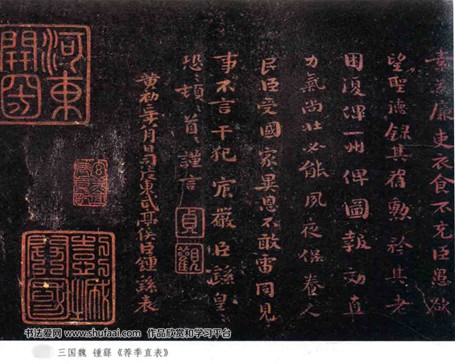 素為廉吏衣食不充臣愚欲
望聖德錄其舊勳矜其老
困復俾一州俾圖報効直
力氣尚壯必能夙夜保養人
民臣受國家異恩不敢雷同見
事不言干犯宸嚴臣繇皇
恐〻頓〻首〻謹言
貞觀
黃初二年八月日司徒東武亭侯臣鍾繇表
河東
彭城開國
书法爱网 www.shufaai.com 作品欣赏和学习平台
三国魏 锺繇《荐季直表》